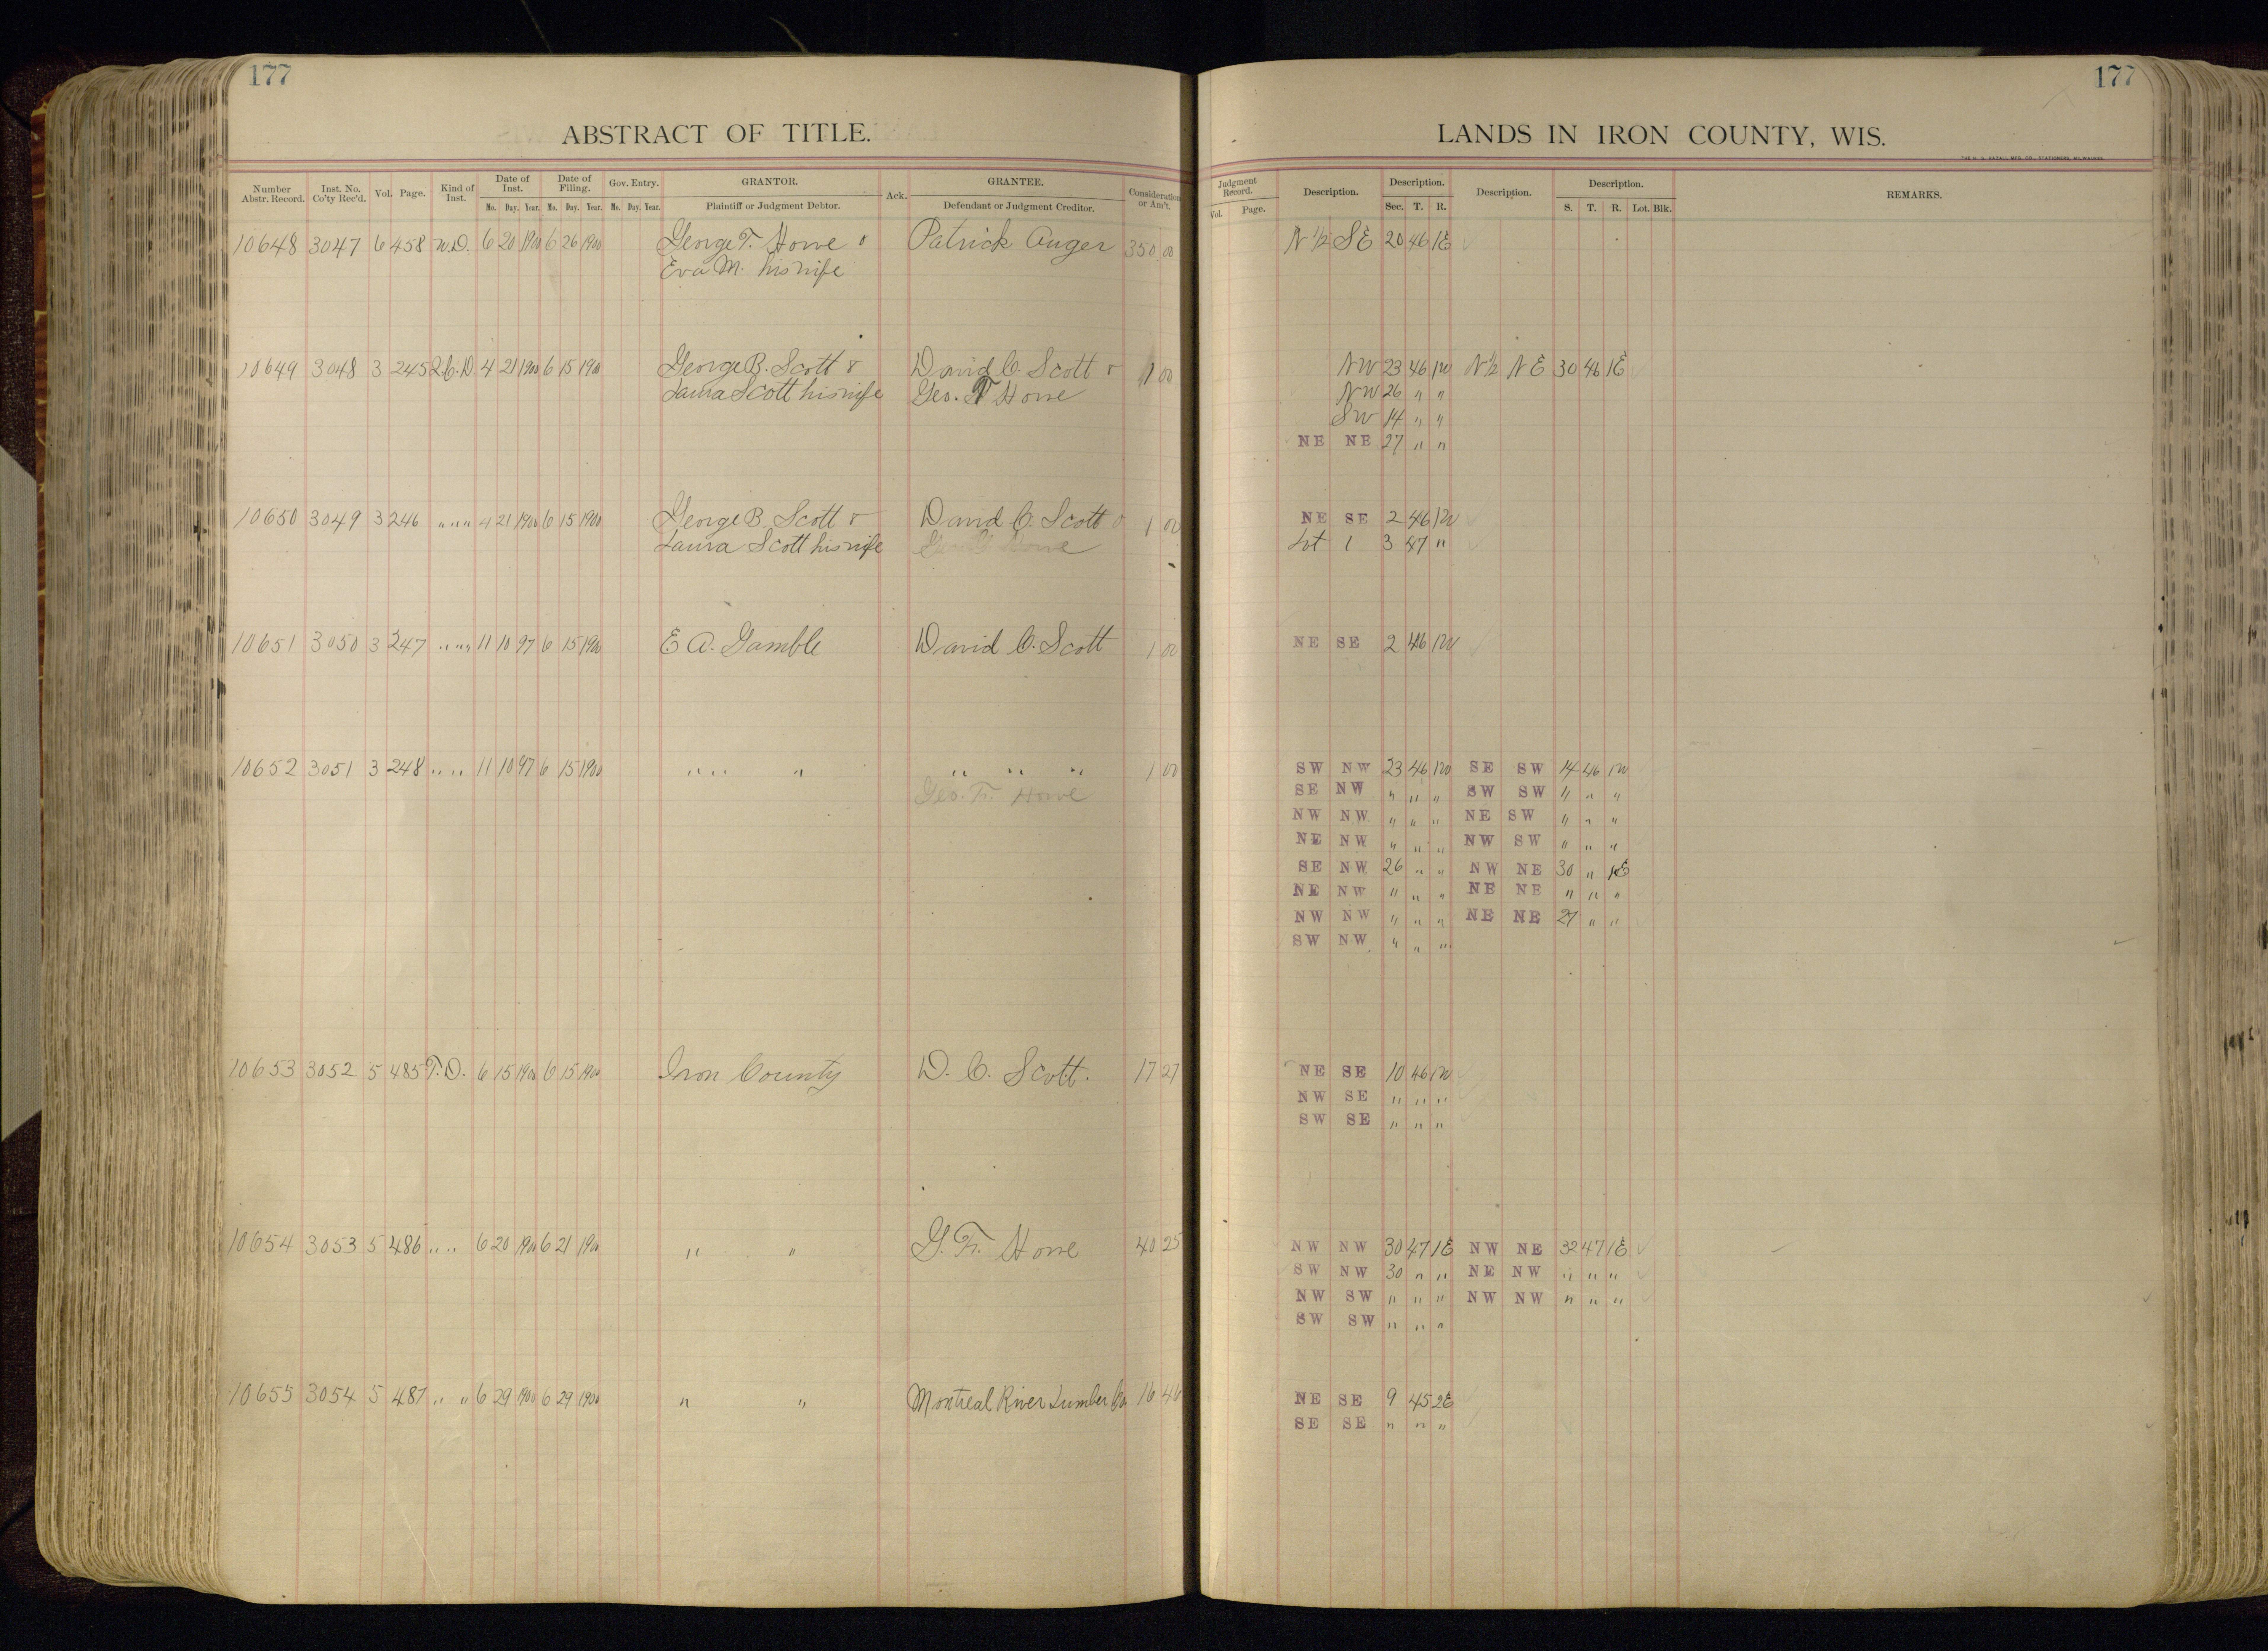 177
ABSTRACT OF TITLE.
Number Abstr. Record. Inst. No. Co'ty Rec'd. Vol. Page. Kind of Inst. Date of Inst. Date of Filing. Gov. Entry. GRANTOR. Ack. GRANTEE. Consideration or Am't.
Mo. Day. Year. Mo. Day. Year. Mo. Day. Year. Plaintiff or Judgment Debtor. Defendant or Judgment Creditor.
10648 3047 6 458 W.D. 6 20 1900 6 26 1900 George T. Howe & Patrick Auger 350 00
Eva M. his wife
10649 3048 3 245 2.C.D 4 21 1900 6 15 1900 George B. Scott & David C. Scott & 1 00
Laura Scott his wife Geo. F Howe
10650 3049 3 246 " " " 4 21 1900 6 15 1900 George B. Scott & David C. Scott & 1 00
Laura Scott his wife Howe
10651 3050 3 247 " " " 11 10 97 6 15 1900 E A. Gamble David C. Scott 1 00
10652 3051 3 248 " " 11 10 97 6 15 1900 " " " " " " 1 00
Geo. F. Howe
10653 3052 5 485 T.D. 6 15 1900 6 15 1900 Iron County D. C. Scott. 17 27
10654 3053 5 486 " " 6 20 1900 6 21 1900 " " G. F. Howe 40 25
10655 3054 5 487 " " 6 29 1900 6 29 1900 " " Montreal River Lumber Co. 16 46
177
LANDS IN IRON COUNTY, WIS.
THE H. G. RAZALL MFG. CO., STATIONERS, MILWAUKEE.
Judgment Record. Description. Description. Description. Description. REMARKS.
Vol. Page. Sec. T. R. S. T. R. Lot. Blk.
N 1/2 SE 20 46 1E
NW 23 46 1W N 1/2 NE 30 46 1E
NW 26 " "
SW 14 " "
NE NE 27 " "
NE SE 2 46 1W
Lot 1 3 47 "
NE SE 2 46 1W
SW NW 23 46 1W SE SW 14 46 1W
SE NW " " " SW SW " " "
NW NW " " " NE SW " " "
NE NW " " " NW SW " " "
SE NW 26 " " NW NE 30 " 1E
NE NW " " " NE NE " " "
NW NW " " " NE NE 27 " "
SW NW " " "
NE SE 10 46 1W
NW SE " " "
SW SE " " "
NW NW 30 47 1E NW NE 32 47 1E
SW NW 30 " " NE NW " " "
NW SW " " " NW NW " " "
SW SW " " "
NE SE 9 45 2E
SE SE " " "